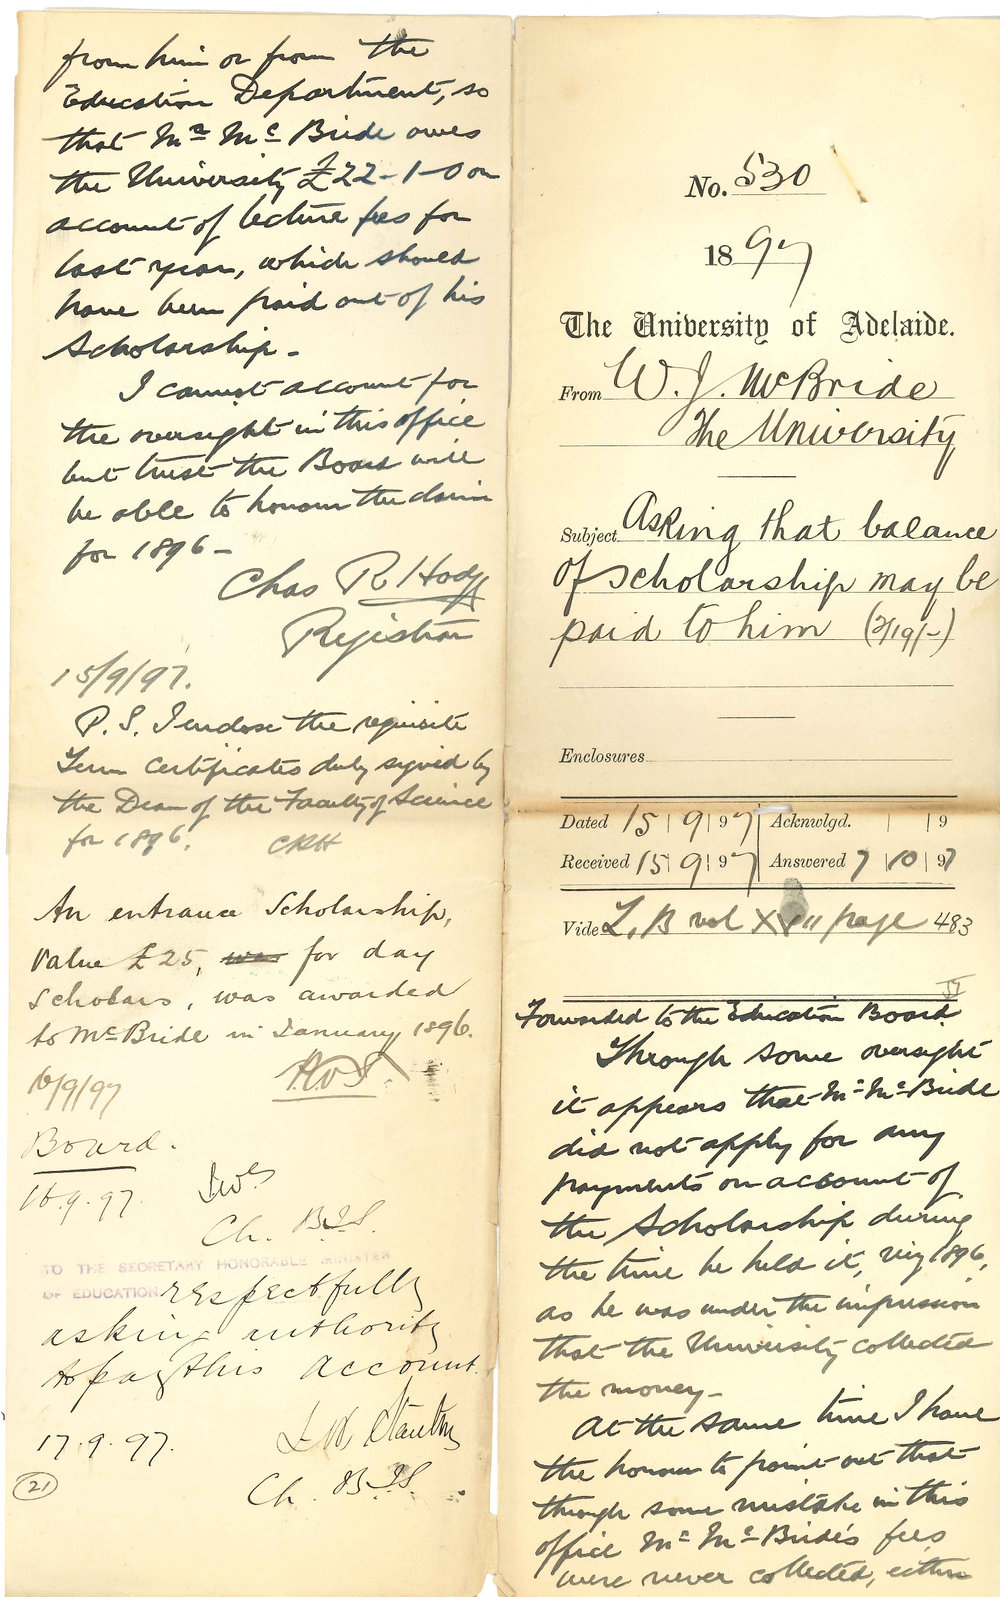 No. 530
1897
The University of Adelaide.
From W. J. McBride
The University
Subject Asking that balance
of Scholarship may be
paid to him (2/19/-)
Enclosures
Dated 15 | 9 | 97 Acknwlgd. | | 9
Received 15 | 9 | 97 Answered 7 | 10 | 97
Vide L. B vol page 483
Forwarded to the Education Board.
Through some oversight
it appears that Mr McBride
did not apply for any
payments on account of
the Scholarship during
the time he held it, viz 1896,
as he was under the impression
that the University collected
the money -
At the same time I have
the honour to point out that
through some mistake in this
office Mr McBride's fees
were never collected, either
from him or from the
Education Department, so
that Mr McBride owes
the University £22-1-0 on
account of lecture fees for
last year, which should
have been paid out of his
Scholarship -
I cannot account for
the oversight in this office
but trust the Board will
be able to honour the claim
for 1896 -
Chas R Hodge
Registrar
15/9/97.
P.S. I enclose the requisite
Term Certificates duly signed by
the Dean of the Faculty of Science
for 1896. CRH
An entrance Scholarship,
value £25, was for day
scholars, was awarded
to McBride in January 1896.
16/9/97
Board.
16.9.97.
Ch. B.I.S.
TO THE SECRETARY HONORABLE MINISTER
OF EDUCATION respectfully
asking authority
to pay this account.
17.9.97. L W Stanton
21 Ch. B.I.S.